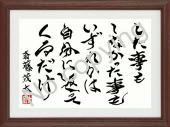 した事も
しなかった事も
いずれは
自分に返って
くるんだよ
斎藤茂太